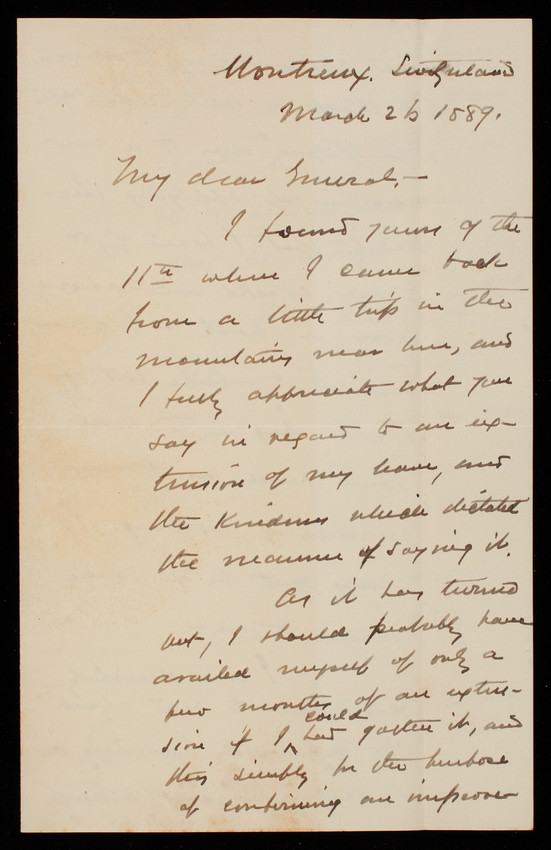 Montreux, Switzerland
March 26 1889.
My dear General,—
I found yours of the
11th when I came back
from a little trip in the
mountains near here, and
I fully appreciate what you
say in regard to an ex-
tension of my leave, and
the kindness which dictated
the manner of saying it.
As it has turned
out, I should probably have
availed myself of only a
few months of an exten-
sion if I could had gotten it, and
this simply for the purpose
of confirming an improve-